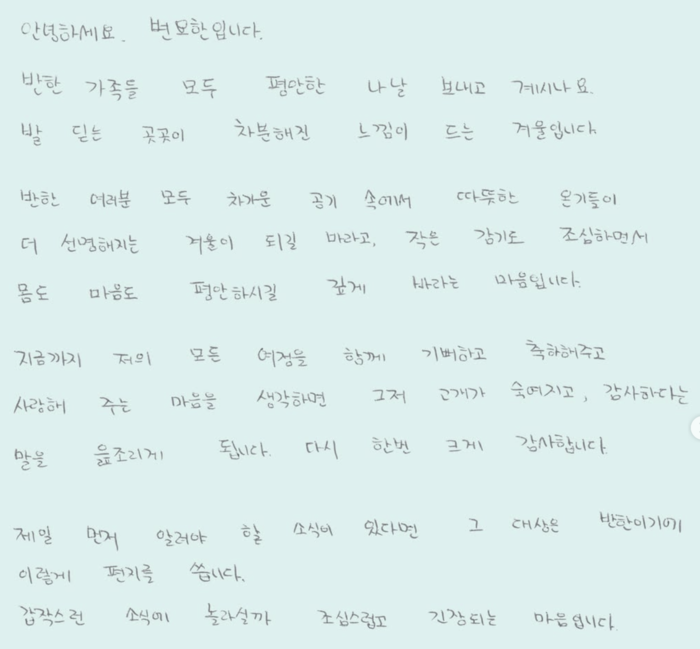 안녕하세요. 변모한입니다.
반한 가족들 모두 평안한 나날 보내고 계시나요.
발 딛는 곳곳이 차분해진 느낌이 드는 겨울입니다
반한 여러분 모두 차가운 공기 속에서 따뜻한 온기들이
더 선명해지는 겨울이 되길 바라고, 작은 감기도 조심하면서
몸도 마음도 평안하시길 깊게 바라는 마음입니다.
지금까지 저의 모든 여정을 함께 기뻐하고 축하해주고
사랑해 주는 마음을 생각하면 그저 고개가 숙여지고, 감사하다는
말을 읊조리게 됩니다. 다시 한번 크게 감사합니다
제일 먼저 알려야 할 소식이 있다면 그 대상은 반한이기에
이렇게 편지를 씁니다.
갑작스런 소식에 놀라실까 조심스럽고 긴장되는 마음입니다.